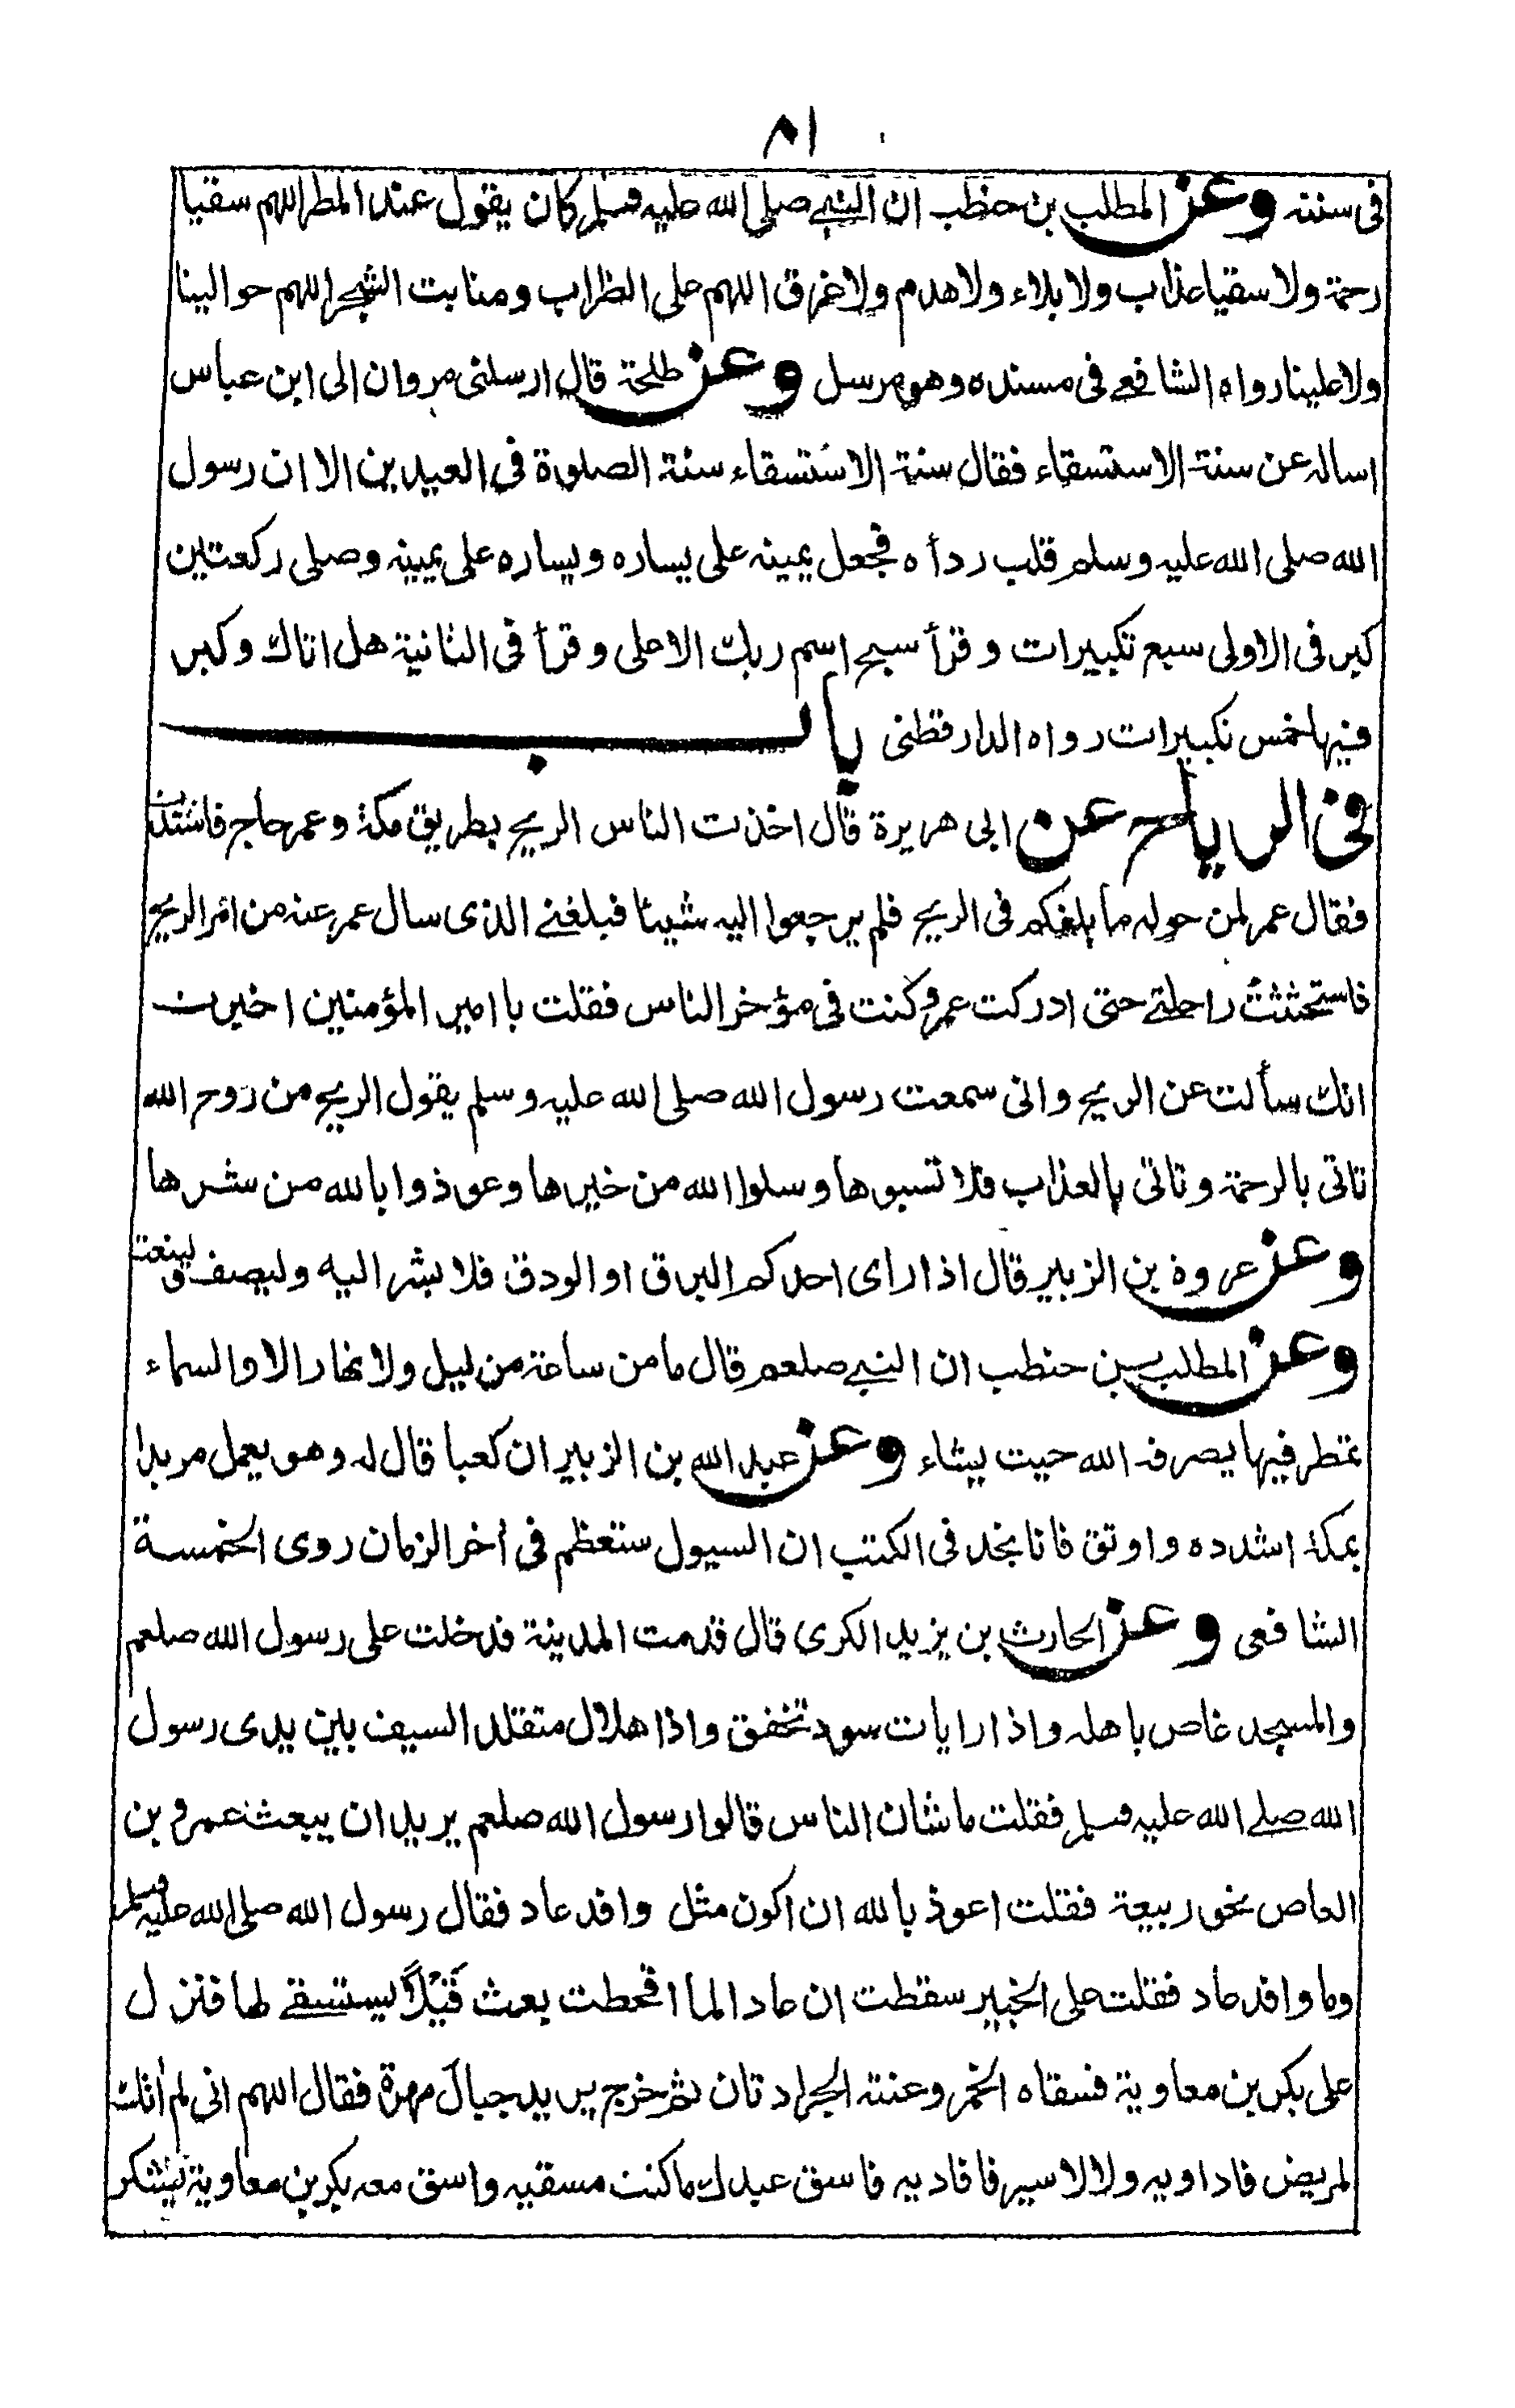 ٨١
فى سننه وعن المطلب بن حنظب ان النبى صلى الله عليه وسلم كان يقول عند المطر اللهم سقيا
رحمة ولا سقيا عذاب ولا بلاء ولا هدم ولا غرق اللهم على الظراب ومنابت الشجر اللهم حوالينا
ولا علينا رواه الشافعى فى مسنده وهو مرسل وعن طلحة قال ارسلنى مروان الى ابن عباس
اساله عن سنة الاستسقاء فقال سنة الاستسقاء سنة الصلوة فى العيدين الا ان رسول
الله صلى الله عليه وسلم قلب ردأه فجعل يمينه على يساره ويساره على يمينه وصلى ركعتين
كبر فى الاولى سبع تكبيرات وقرأ سبح اسم ربك الاعلى وقرأ فى الثانية هل اتاك وكبر
فيها خمس تكبيرات رواه الدارقطنى باب
فى الرياح عن ابى هريرة قال اخذت الناس الريح بطريق مكة وعمر حاج فاشتدت
فقال عمر لمن حوله ما بلغكم فى الريح فلم يرجعوا اليه شيئا فبلغنى الذى سال عمر عنه من امر الريح
فاستحثثت راحلتى حتى ادركت عمر وكنت فى مؤخر الناس فقلت يا امير المؤمنين اخبرت
انك سألت عن الريح وانى سمعت رسول الله صلى الله عليه وسلم يقول الريح من روح الله
تاتى بالرحمة وتاتى بالعذاب فلا تسبوها وسلوا الله من خيرها وعوذوا بالله من شرها
وعن عروة بن الزبير قال اذا راى احدكم البرق او الودق فلا يشر اليه وليصف ولينعت
وعن المطلب بن حنطب ان النبى صلعم قال ما من ساعة من ليل ولا نهار الا والسماء
تمطر فيها يصرفه الله حيث يشاء وعن عبد الله بن الزبير ان كعبا قال له وهو يعمل مربدا
بمكة اشدده واوثق فانا نجد فى الكتب ان السيول ستعظم فى أخر الزمان روى الخمسة
الشافعى وعن الحارث بن يزيد الكرى قال قدمت المدينة فدخلت على رسول الله صلعم
والمسجد غاص باهله واذا رايات سود تخفق واذا هلال متقلد السيف بين يدى رسول
الله صلى الله عليه وسلم فقلت ما شان الناس قالوا رسول الله صلعم يريد ان يبعث عمرو بن
العاص نحو ربيعة فقلت اعوذ بالله ان اكون مثل وافد عاد فقال رسول الله صلى الله عليه وسلم
وما وافد عاد فقلت على الخبير سقطت ان عاد الما اقحطت بعث قَيْلًا يستسقى لها فنزل
على بكر بن معاوية فسقاه الخمر وغنته الجرادتان ثم خرج يريد جبال مهرة فقال اللهم انى لم أتك
لمريض فاداويه ولا لاسير فافاديه فاسق عبدك ما كنت مسقيه واسق معه بكر بن معاوية يشكر